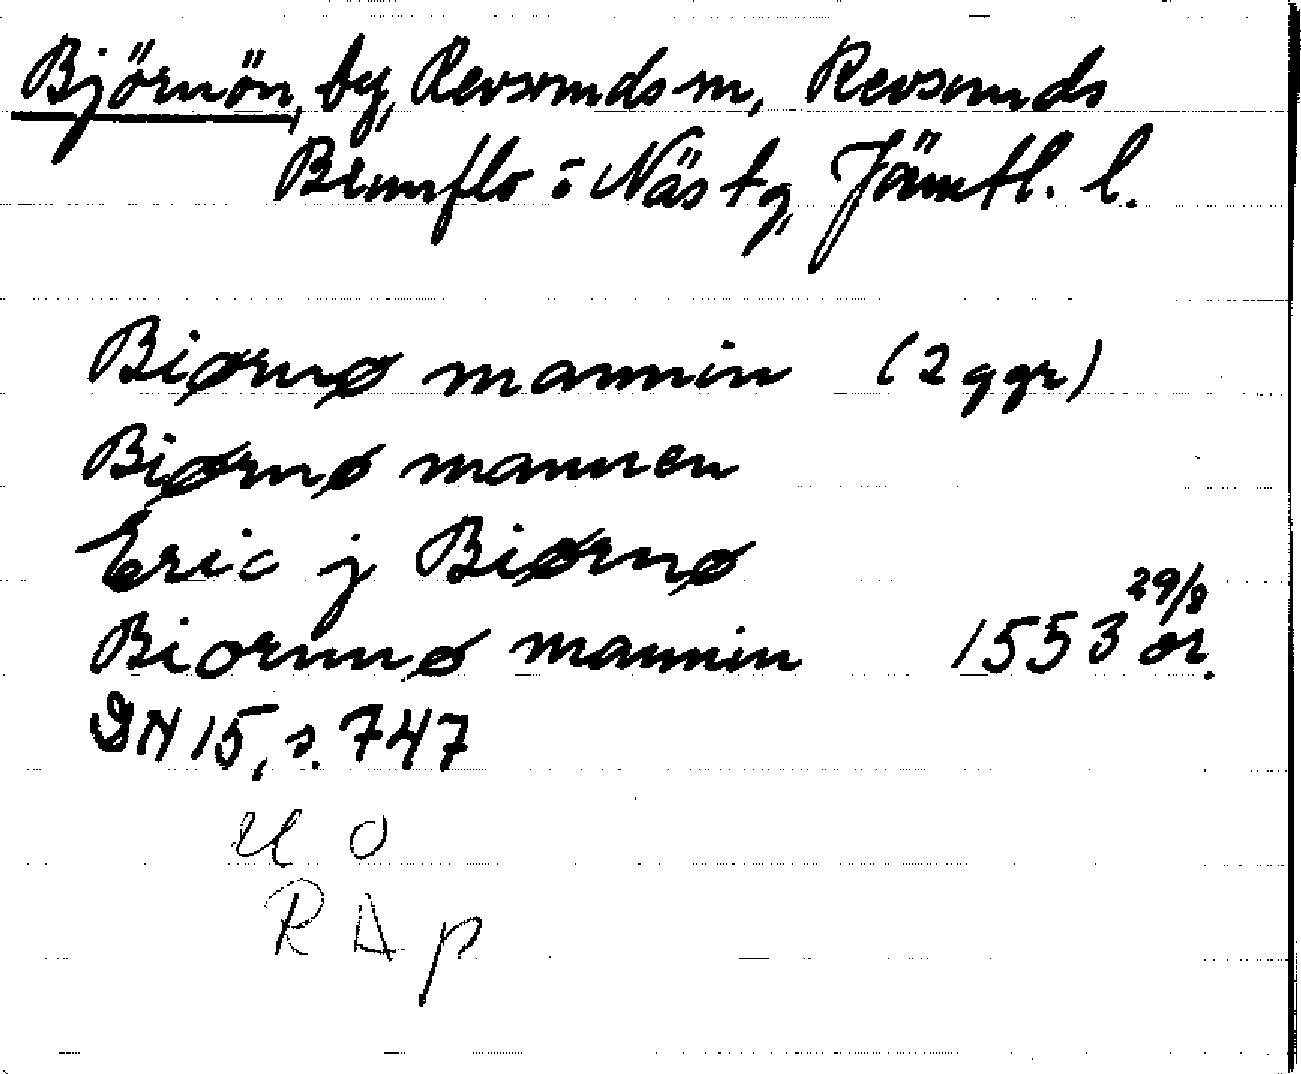 Björnön, by, Revsunds sn, Revsunds
Brunflo o Näs tg, Jämtl. l.
Biørnø mannin (2 ggr)
Biørnø mannen
Eric j Biørnø
Biornnø mannin 1553 29/8 or.
DN 15, s. 747
U O
R A p